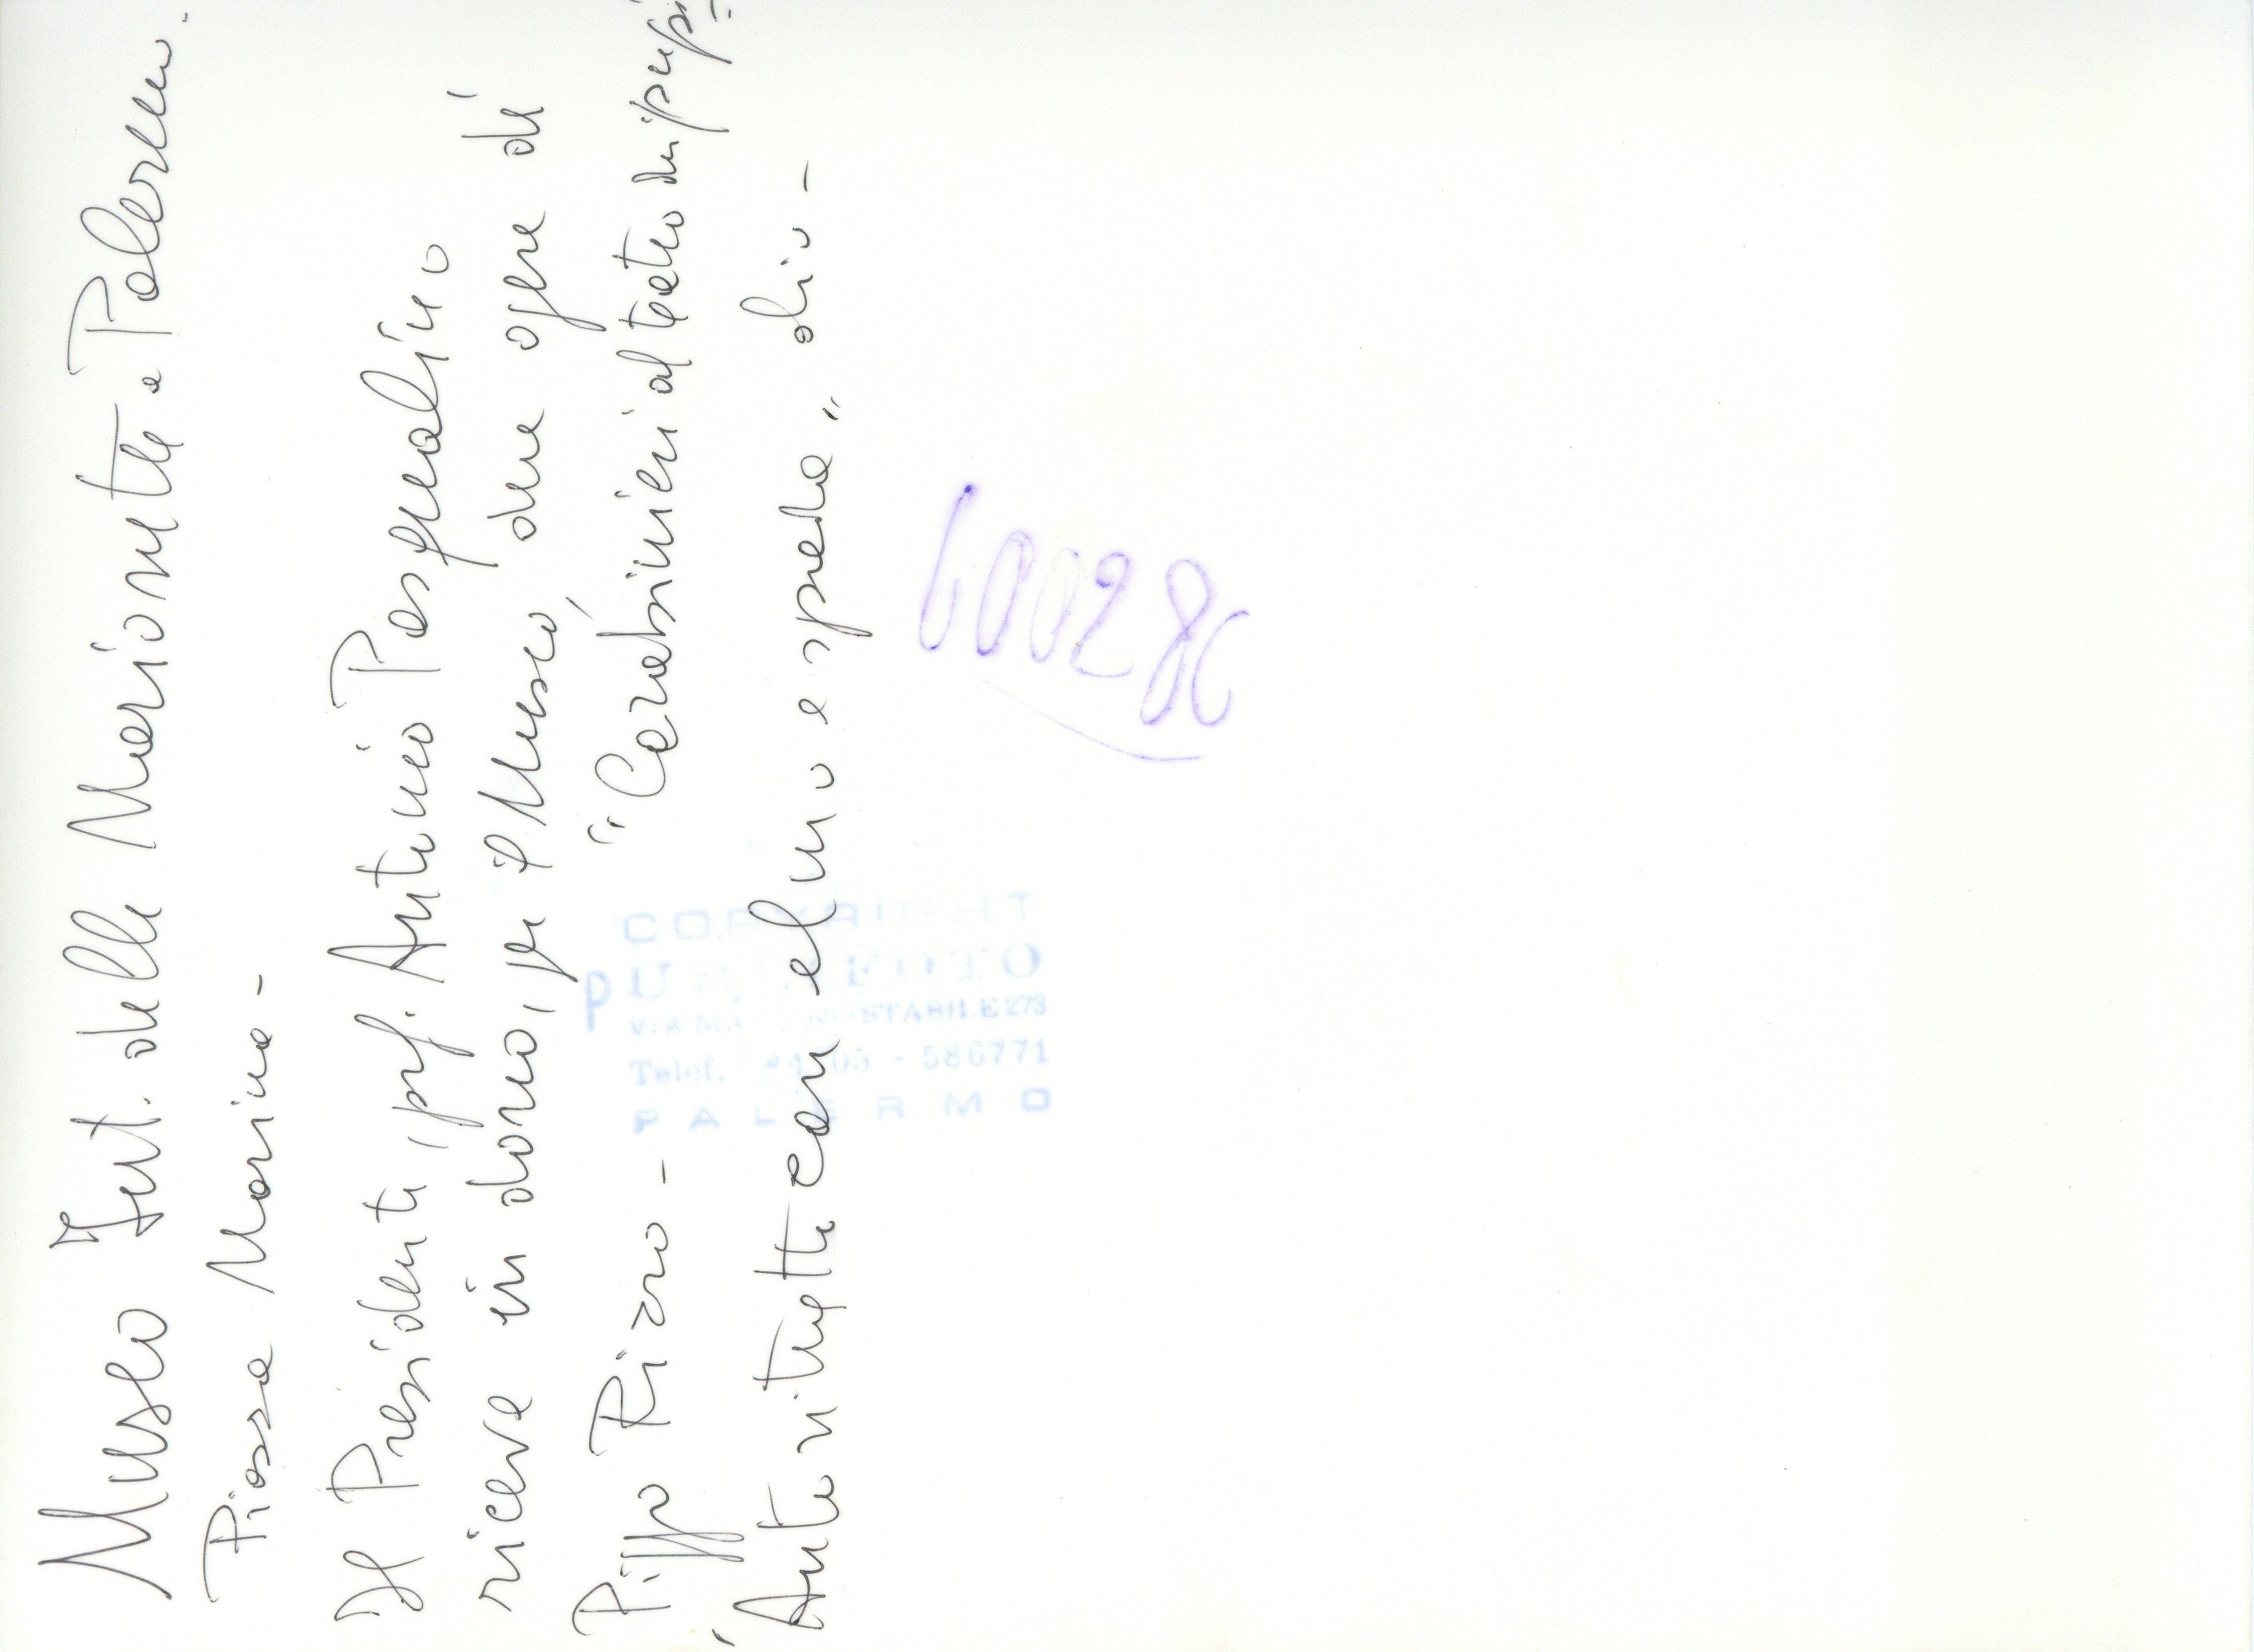 Museo Int. delle Marionette - Palermo.
Piazza Marina -
Il Presidente, prof. Antonio Pasqualino
riceve in dono, per il Museo, due opere di
Pippo Rizzo - "Carabinieri al teatro dei pupi" =
"Autoritratto con elmo e spada" olio -
COPYRIGHT
PUBLIFOTO
VIA MARIANO STABILE 273
Telef. - 586771
PALERMO